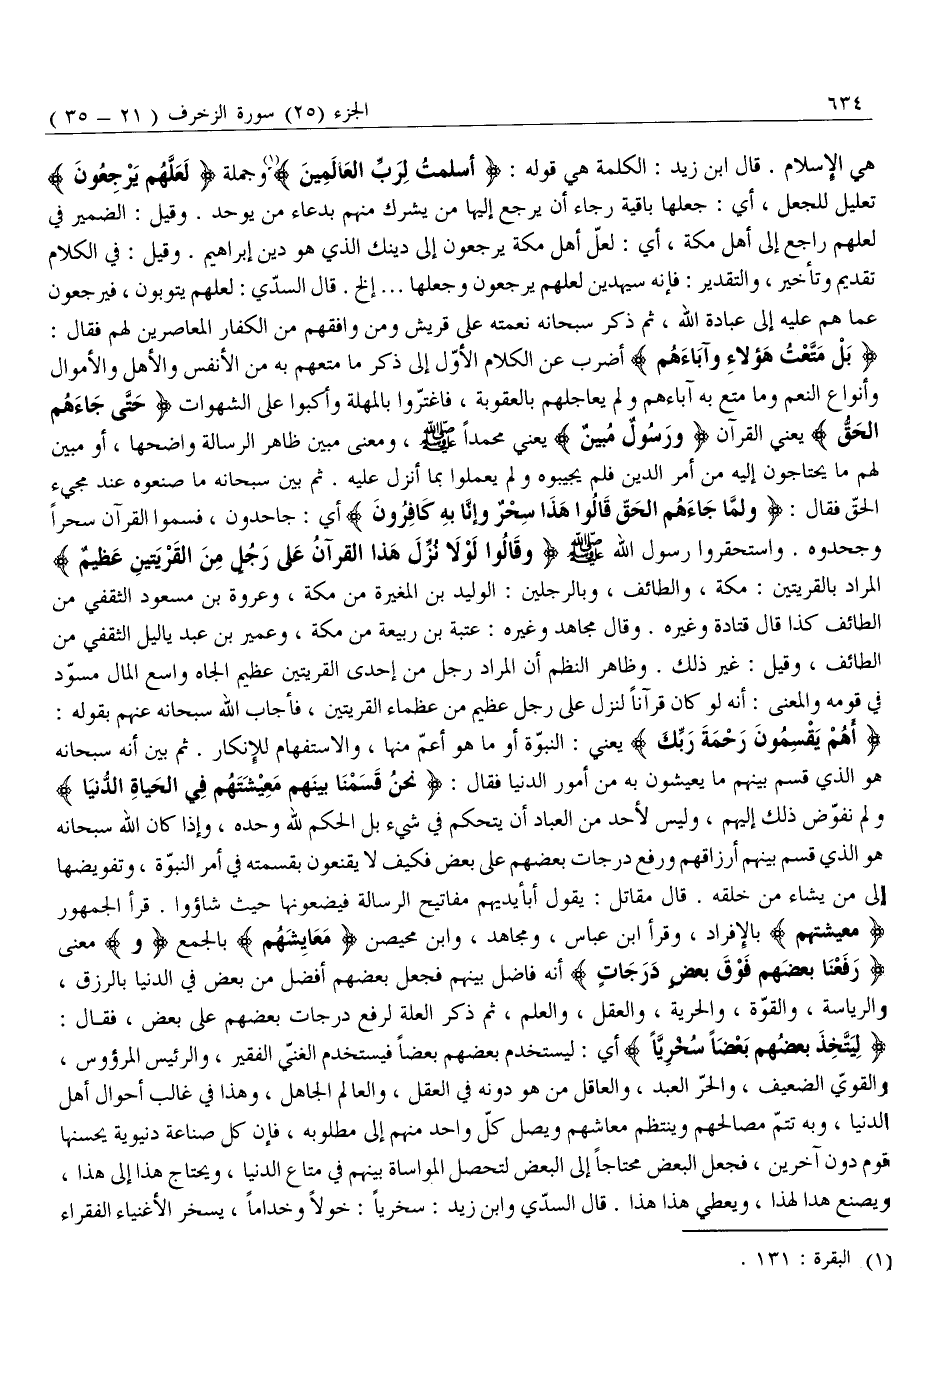 ٦٣٤
الجزء (٢٥) سورة الزخرف ( ٢١ – ٣٥ )
هي الإسلام . قال ابن زيد : الكلمة هي قوله : ﴿ أسلمتُ لِرَبِّ العَالَمِينَ ﴾(١) وجملة ﴿ لَعَلَّهُم يَرْجِعُونَ ﴾
تعليل للجعل ، أي : جعلها باقية رجاء أن يرجع إليها من يشرك منهم بدعاء من يوحد . وقيل : الضمير في
لعلهم راجع إلى أهل مكة ، أي : لعلّ أهل مكة يرجعون إلى دينك الذي هو دين إبراهيم . وقيل : في الكلام
تقديم وتأخير ، والتقدير : فإنه سيهدين لعلهم يرجعون وجعلها ... إلخ . قال السدّي : لعلهم يتوبون ، فيرجعون
عما هم عليه إلى عبادة الله ، ثم ذكر سبحانه نعمته على قريش ومن وافقهم من الكفار المعاصرين لهم فقال :
﴿ بَلْ مَتَّعْتُ هَؤلاءِ وآبَاءَهُم ﴾ أضرب عن الكلام الأوّل إلى ذكر ما متعهم به من الأنفس والأهل والأموال
وأنواع النعم وما متع به آباءهم ولم يعاجلهم بالعقوبة ، فاغترّوا بالمهلة وأكبوا على الشهوات ﴿ حَتَّى جَاءَهُم
الحَقُّ ﴾ يعني القرآن ﴿ ورَسُولٌ مُبينٌ ﴾ يعني محمداً ﷺ ، ومعنى مبين ظاهر الرسالة واضحها ، أو مبين
لهم ما يحتاجون إليه من أمر الدين فلم يجيبوه ولم يعملوا بما أنزل عليه . ثم بين سبحانه ما صنعوه عند مجيء
الحقّ فقال : ﴿ ولمَّا جَاءَهُم الحَقّ قَالُوا هَذَا سِحْرٌ وإنَّا بهِ كَافِرُونَ ﴾ أي : جاحدون ، فسموا القرآن سحراً
وجحدوه . واستحقروا رسول الله ﷺ ﴿ وقَالُوا لَوْلَا نُزِّلَ هَذا القرآنُ عَلى رَجُلٍ مِنَ القَرْيَتينِ عَظيمٌ ﴾
المراد بالقريتين : مكة ، والطائف ، وبالرجلين : الوليد بن المغيرة من مكة ، وعروة بن مسعود الثقفي من
الطائف كذا قال قتادة وغيره . وقال مجاهد وغيره : عتبة بن ربيعة من مكة ، وعمير بن عبد ياليل الثقفي من
الطائف ، وقيل : غير ذلك . وظاهر النظم أن المراد رجل من إحدى القريتين عظيم الجاه واسع المال مسوّد
في قومه والمعنى : أنه لو كان قرآناً لنزل على رجل عظيم من عظماء القريتين ، فأجاب الله سبحانه عنهم بقوله :
﴿ أَهُمْ يَقْسِمُونَ رَحْمَةَ رَبِّكَ ﴾ يعني : النبوّة أو ما هو أعمّ منها ، والاستفهام للإنكار . ثم بين أنه سبحانه
هو الذي قسم بينهم ما يعيشون به من أمور الدنيا فقال : ﴿ نحنُ قَسَمْنَا بينَهم مَعِيْشَتَهُم فِي الحَياةِ الدُّنيَا ﴾
ولم نفوّض ذلك إليهم ، وليس لأحد من العباد أن يتحكم في شيء بل الحكم لله وحده ، وإذا كان الله سبحانه
هو الذي قسم بينهم أرزاقهم ورفع درجات بعضهم على بعض فكيف لا يقنعون بقسمته في أمر النبوّة ، وتفويضها
إلى من يشاء من خلقه . قال مقاتل : يقول أبأيديهم مفاتيح الرسالة فيضعونها حيث شاؤوا . قرأ الجمهور
﴿ معيشتهم ﴾ بالإفراد ، وقرأ ابن عباس ، ومجاهد ، وابن محيصن ﴿ مَعَايِشَهُم ﴾ بالجمع ﴿ و ﴾ معنى
﴿ رَفَعْنَا بعضَهم فَوْقَ بعضٍ دَرَجَاتٍ ﴾ أنه فاضل بينهم فجعل بعضهم أفضل من بعض في الدنيا بالرزق ،
والرياسة ، والقوّة ، والحرية ، والعقل ، والعلم ، ثم ذكر العلة لرفع درجات بعضهم على بعض ، فقـال :
﴿ لِيَتَّخِذَ بعضُهم بَعْضَاً سُخْرِيَّاً ﴾ أي : ليستخدم بعضهم بعضاً فيستخدم الغنيّ الفقير ، والرئيس المرؤوس ،
والقويّ الضعيف ، والحرّ العبد ، والعاقل من هو دونه في العقل ، والعالم الجاهل ، وهذا في غالب أحوال أهل
الدنيا ، وبه تتمّ مصالحهم وينتظم معاشهم ويصل كلّ واحد منهم إلى مطلوبه ، فإن كل صناعة دنيوية يحسنها
قوم دون آخرين ، فجعل البعض محتاجاً إلى البعض لتحصل المواساة بينهم في متاع الدنيا ، ويحتاج هذا إلى هذا ،
ويصنع هذا لهذا ، ويعطي هذا هذا . قال السدّي وابن زيد : سخرياً : خولاً وخداماً ، يسخر الأغنياء الفقراء
(١) البقرة : ١٣١ .